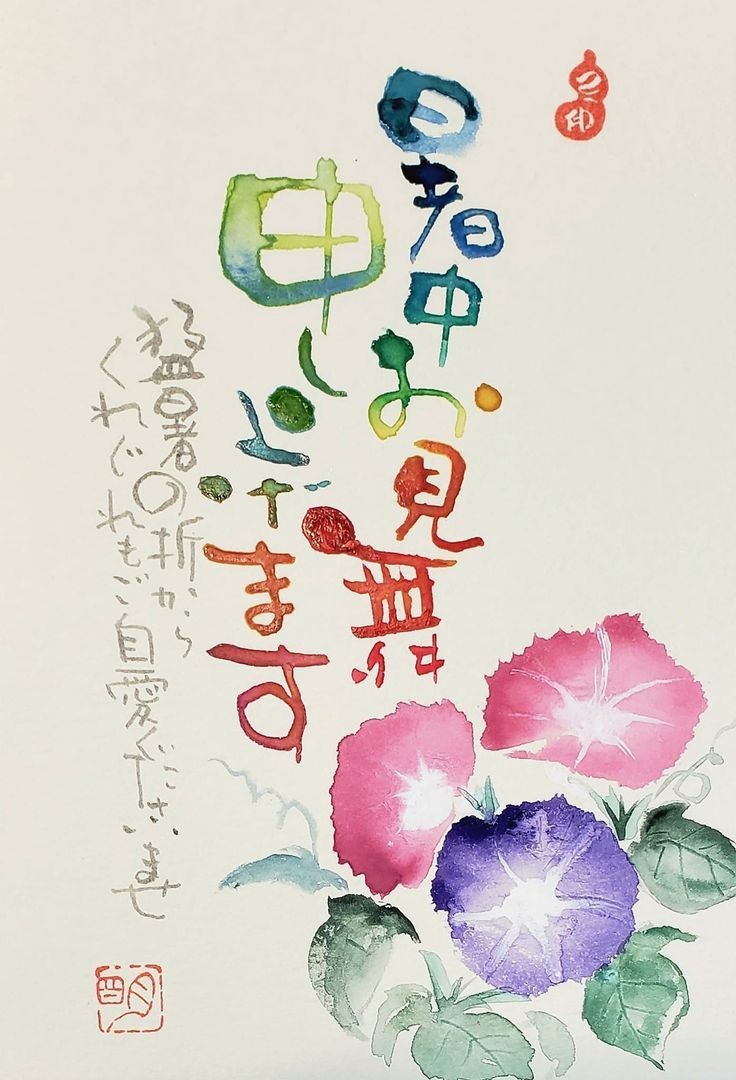 暑中お見舞
申し上げます
猛暑の折から
くれぐれもご自愛くださいませ